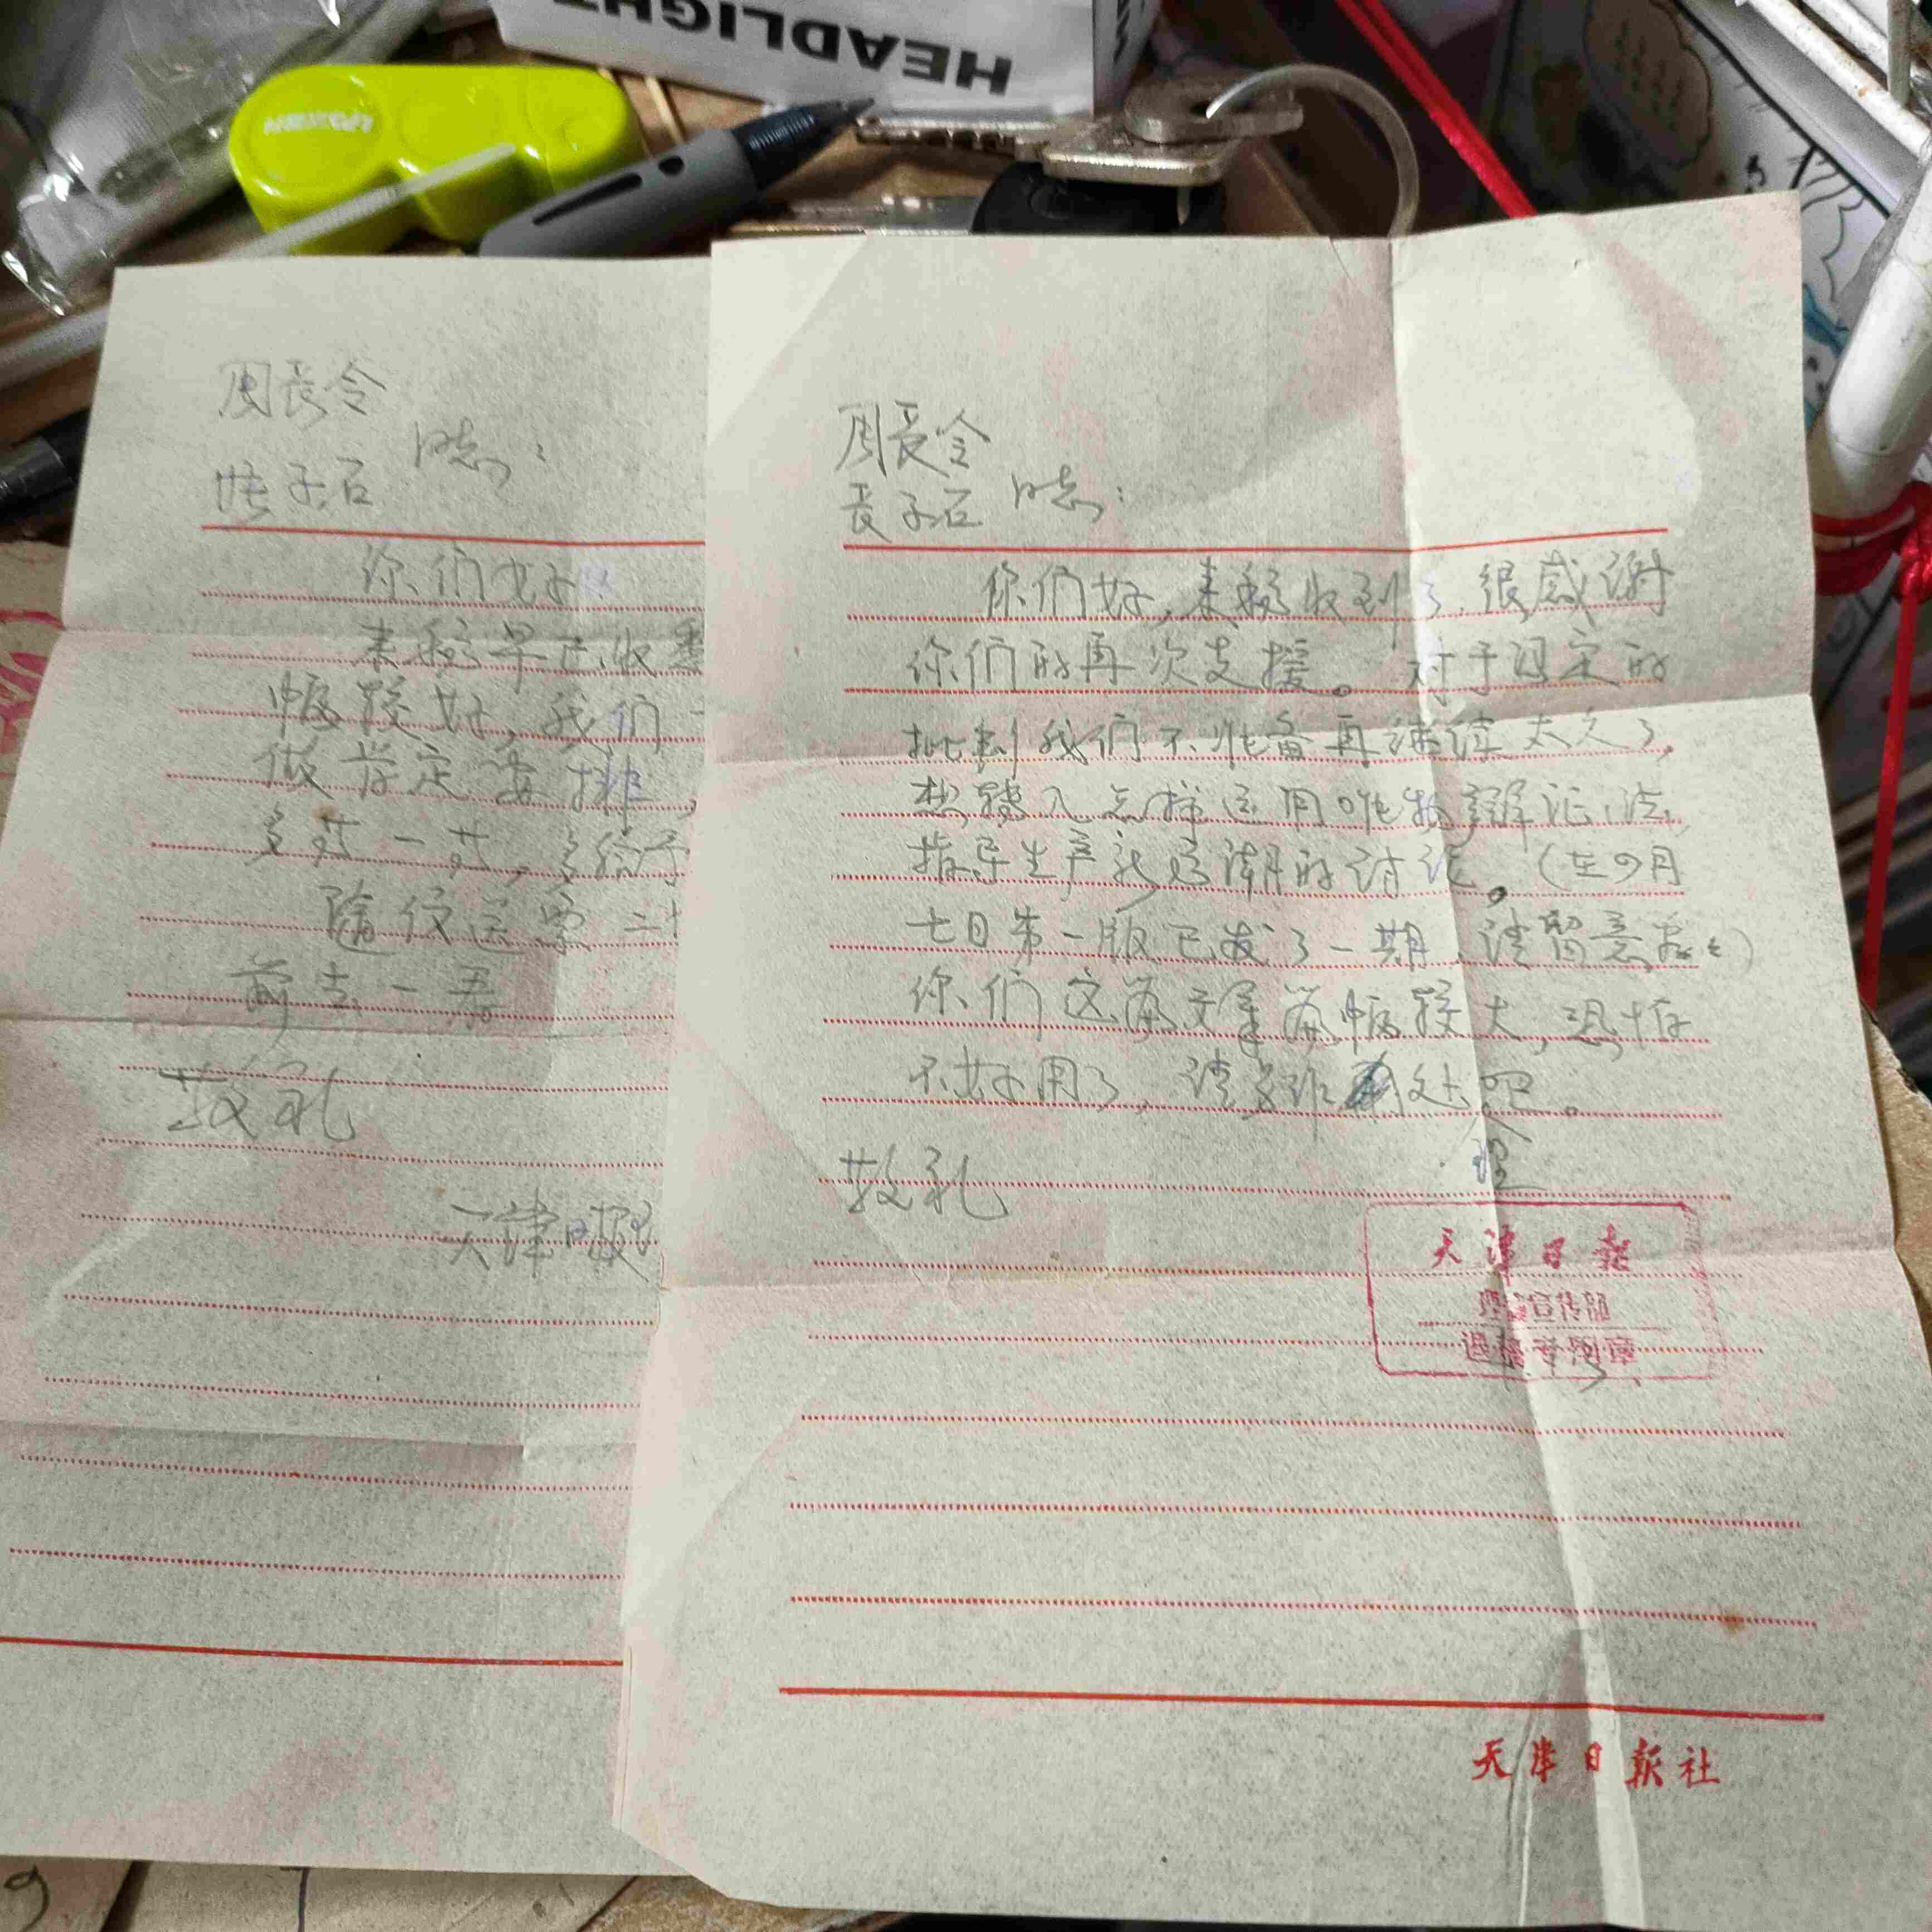 HEADLIGHT
周长令
同志:
你们好
来稿早已收
幅较好,我们
做肯定安排,
多花一些,多给予
随便送票二
前去一看
敬礼
天津日报
周长令
长子石 同志:
你们好,来稿收到了,很感谢
你们的再次支援。对于假定的
批判我们不准备再继续太久了,
想转入怎样运用唯物辩证法
指导生产新高潮的讨论。(在9月
七日第一版已发了一期,请留意
你们这篇文章篇幅较大,恐怕
不好用了,请多作处吧。
理
敬礼
天津日报
理论宣传部
退稿专用章
天津日报社